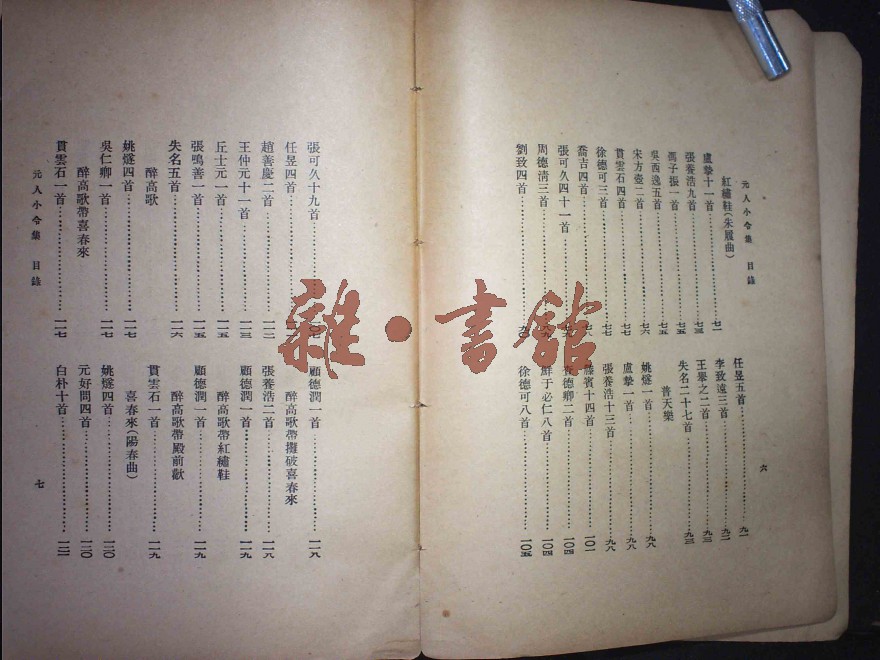 元人小令集 目錄
六
紅繡鞋(朱履曲)
盧摯十一首……七一
張養浩九首……七三
馮子振一首……七五
吳西逸五首……七五
宋方壺二首……七六
貫雲石四首……七七
徐德可三首……七七
喬吉四首……七八
張可久四十一首……七九
周德清三首……八九
劉致四首……九〇
任昱五首……九一
李致遠三首……九二
王舉之二首……九三
失名二十七首……九三
普天樂
姚燧一首……九八
盧摯一首……九八
張養浩十三首……九八
滕賓十四首……一〇一
查德卿二首……一〇四
鮮于必仁八首……一〇四
徐德可八首……一〇五
張可久十九首……一〇七
任昱四首……
趙善慶二首……一一二
王仲元十一首……一一三
丘士元一首……一一五
張鳴善一首……一一五
失名五首……一一六
醉高歌
姚燧四首……一一七
吳仁卿一首……一一七
醉高歌帶喜春來
貫雲石一首……一一七
顧德潤一首……一一八
醉高歌帶攤破喜春來
張養浩二首……一一八
顧德潤一首……一一九
醉高歌帶紅繡鞋
顧德潤一首……一一九
醉高歌帶殿前歡
貫雲石一首……一一九
喜春來(陽春曲)
姚燧四首……一二〇
元好問四首……一二〇
白朴十首……一二一
元人小令集 目錄
七
雜·書館